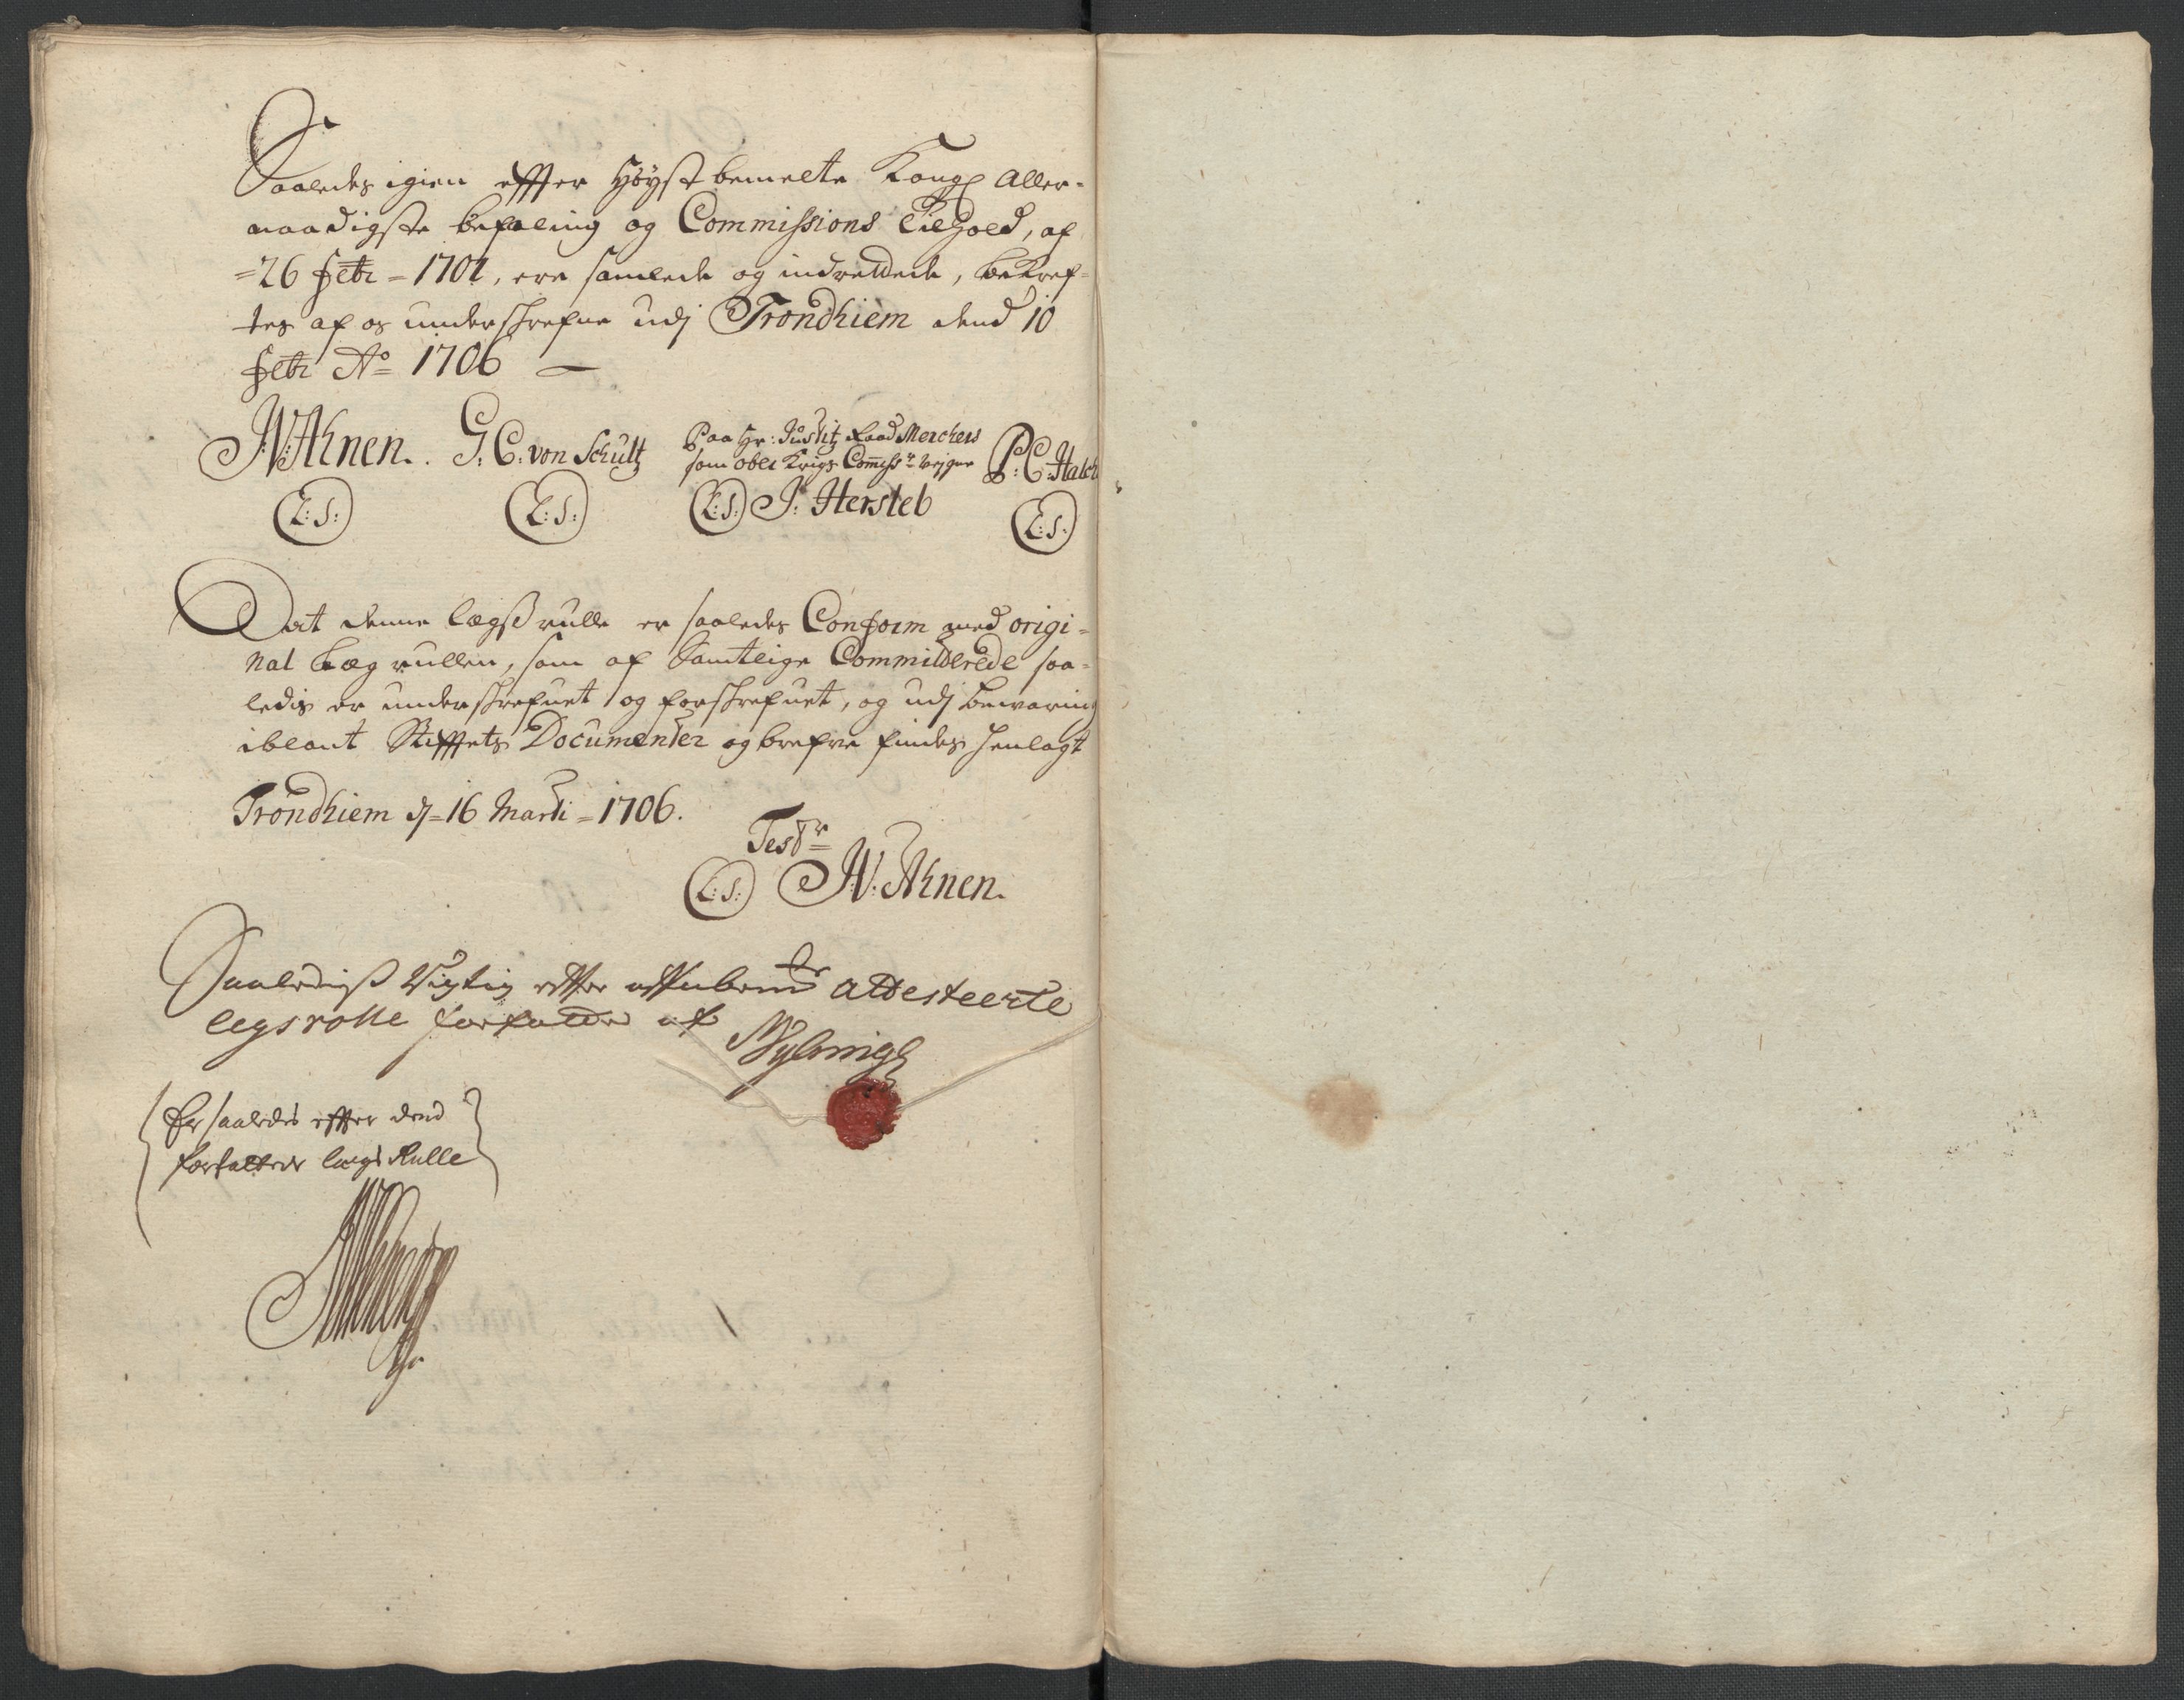 Saaledes igien effter Høyst bemelte Kongl Aller-
naadigste befaling og Commissions Tilhold, af
=26 Febr = 1701, ere samlede og indrettede, bekref-
tes af os underskrefne udj Trondhiem dend 10
Febr Ao 1706
JV: Ahnen. G. C. von Schultz Paa Hr: Justitz Raad Merckers P: C: Hatch
som ober Krigs Commissr Vejgne
L: S: L: S: L: S: J: Hersleb L: S:
Dat denne lægs rulle er saaledes Conform med origi=
nal Læg rullen, som af Samtlige Committerede saa-
ledis er underskrefuet og forskrefuet, og udj bewaring
iblant Stifftets Documenter og brefve findes henlagt
Trondhiem d = 16 Marti = 1706.
Testr
L: S: JV: Ahnen.
Saalediss Rigtig effter attesteerte
legsrolle forfatted af
Er saaledes effter dend
forfattede lægs Rulle
JVAhnen